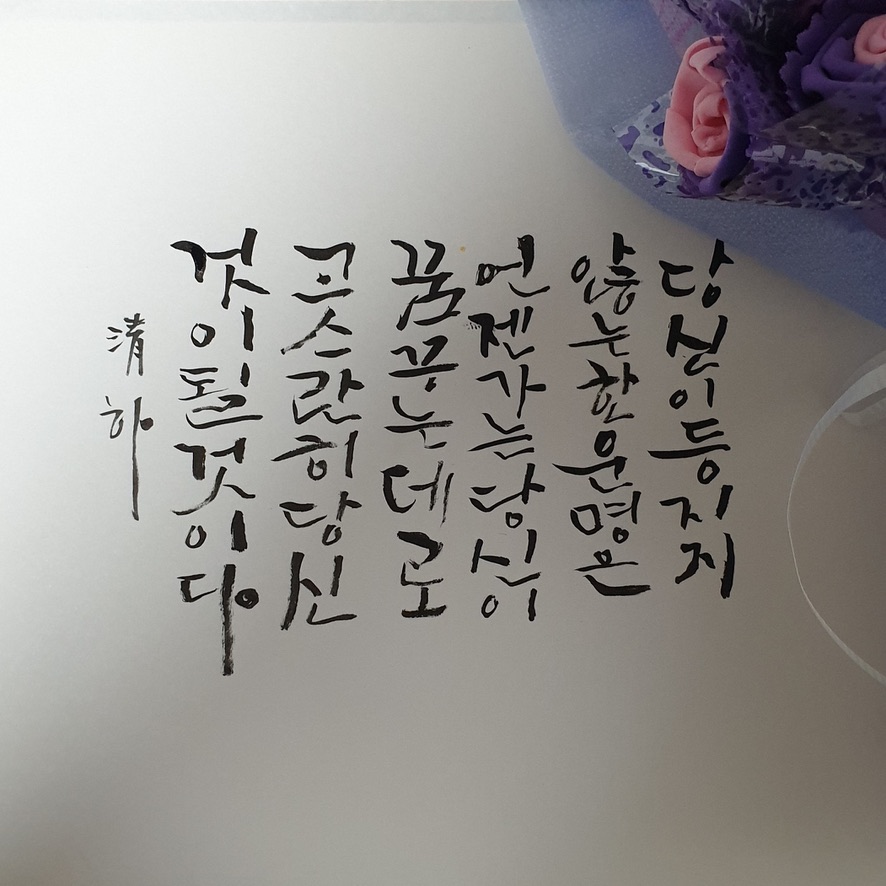 당신이등지지
않는한운명은
언젠가는당신이
꿈꾸는데로
고스란히당신
것이될것이다
清하